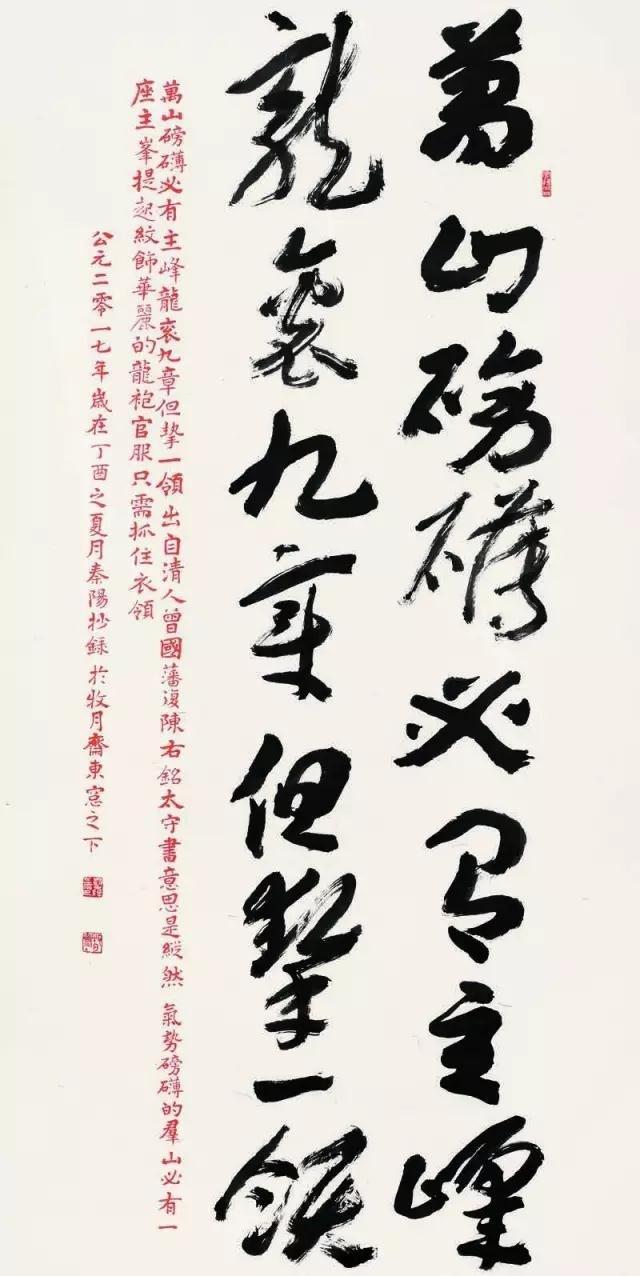 萬山磅礴必有主峰
龍袞九章但挈一領
萬山磅礴必有主峰龍袞九章但挈一領出自清人曾國藩復陳右銘太守書意思是縱然氣勢磅礴的羣山必有一
座主峯提起紋飾華麗的龍袍官服只需抓住衣領
公元二零一七年歲在丁酉之夏月秦陽抄錄於牧月齋東窓之下